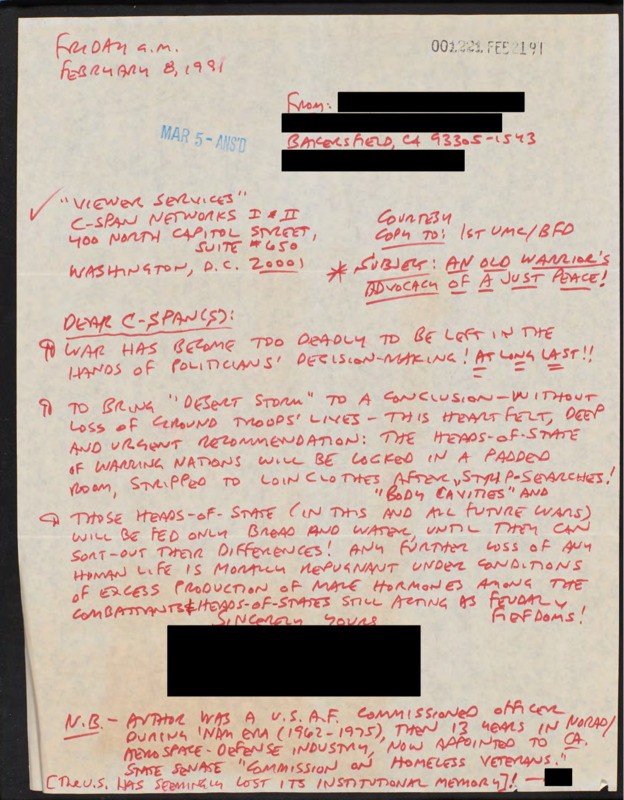 FRIDAY a.m.
FEBRUARY 8, 1991
001221 FEB 21 91
From:
BAKERSFIELD, CA 93305-1543
MAR 5 - ANS'D
"VIEWER SERVICES"
C-SPAN NETWORKS I & II
400 NORTH CAPITOL STREET,
SUITE #650
WASHINGTON, D.C. 20001
COURTESY
COPY TO: 1ST UMC/BFD
* SUBJECT: AN OLD WARRIOR'S
ADVOCACY OF A JUST PEACE!
DEAR C-SPAN(S):
¶ WAR HAS BECOME TOO DEADLY TO BE LEFT IN THE
HANDS OF POLITICIANS' DECISION-MAKING! AT LONG LAST!!
¶ TO BRING "DESERT STORM" TO A CONCLUSION - WITHOUT
LOSS OF GROUND TROOPS' LIVES - THIS HEARTFELT, DEEP
AND URGENT RECOMMENDATION: THE HEADS-OF-STATE
OF WARRING NATIONS WILL BE LOCKED IN A PADDED
ROOM, STRIPPED TO LOINCLOTHES AFTER STRIP-SEARCHES!
"BODY CAVITIES" AND
¶ THOSE HEADS-OF-STATE (IN THIS AND ALL FUTURE WARS)
WILL BE FED ONLY BREAD AND WATER, UNTIL THEY CAN
SORT-OUT THEIR DIFFERENCES! ANY FURTHER LOSS OF ANY
HUMAN LIFE IS MORALLY REPUGNANT UNDER CONDITIONS
OF EXCESS PRODUCTION OF MALE HORMONES AMONG THE
COMBATTANTS & HEADS-OF-STATES STILL ACTING AS FEUDAL
FIEFDOMS!
SINCERELY YOURS
N.B. - AUTHOR WAS A U.S.A.F. COMMISSIONED OFFICER
DURING 'NAM ERA (1962-1975), THEN 13 YEARS IN NORAD/
AEROSPACE-DEFENSE INDUSTRY, NOW APPOINTED TO CA.
STATE SENATE "COMMISSION ON HOMELESS VETERANS."
[The U.S. HAS SEEMINGLY LOST ITS INSTITUTIONAL MEMORY]! -